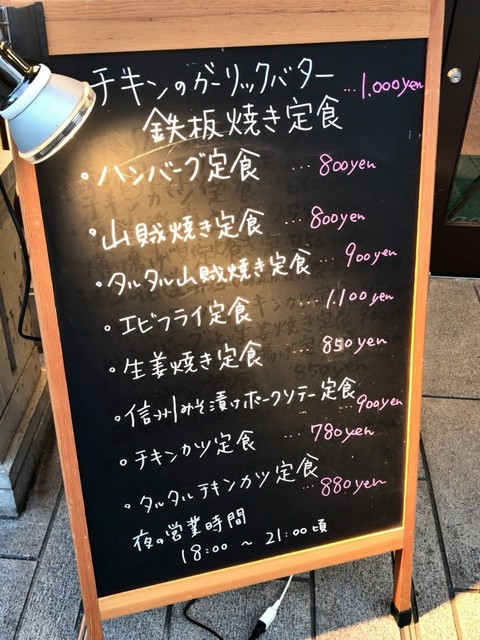 チキンのガーリックバター
鉄板焼き定食 ... 1.000yen
・ハンバーグ定食 ... 800yen
・山賊焼き定食 ... 800yen
・タルタル山賊焼き定食 ... 900yen
・エビフライ定食 ... 1.100yen
・生姜焼き定食 ... 850yen
・信州みそ漬けポークソテー定食 ... 900yen
・チキンカツ定食 ... 780yen
・タルタルチキンカツ定食 ... 880yen
夜の営業時間
18:00 ～ 21:00頃